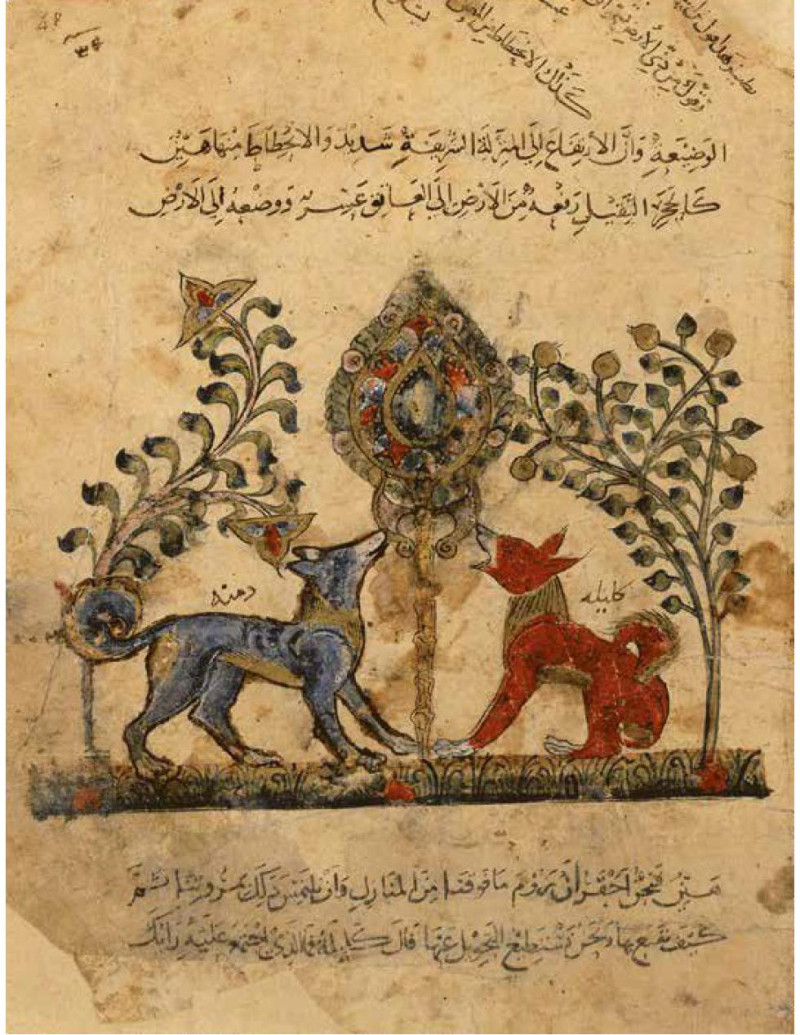 كذلك الانحطاط من
الوضيعة وان الارتفاع الى المنزلة الشريفة شديد والانحطاط منها هين
كالحجر الثقيل رفعه من الارض الى العاتق عسر ووضعه الى الارض
دمنه
كليله
هين فنحن احق ان نروم ما فوقنا من المنازل وان نلتمس ذلك بمروتنا ثم
كيف نقنع بها ونحن نستطيع التحويل عنها قال كليلة فما الذي اجتمع عليه رايك